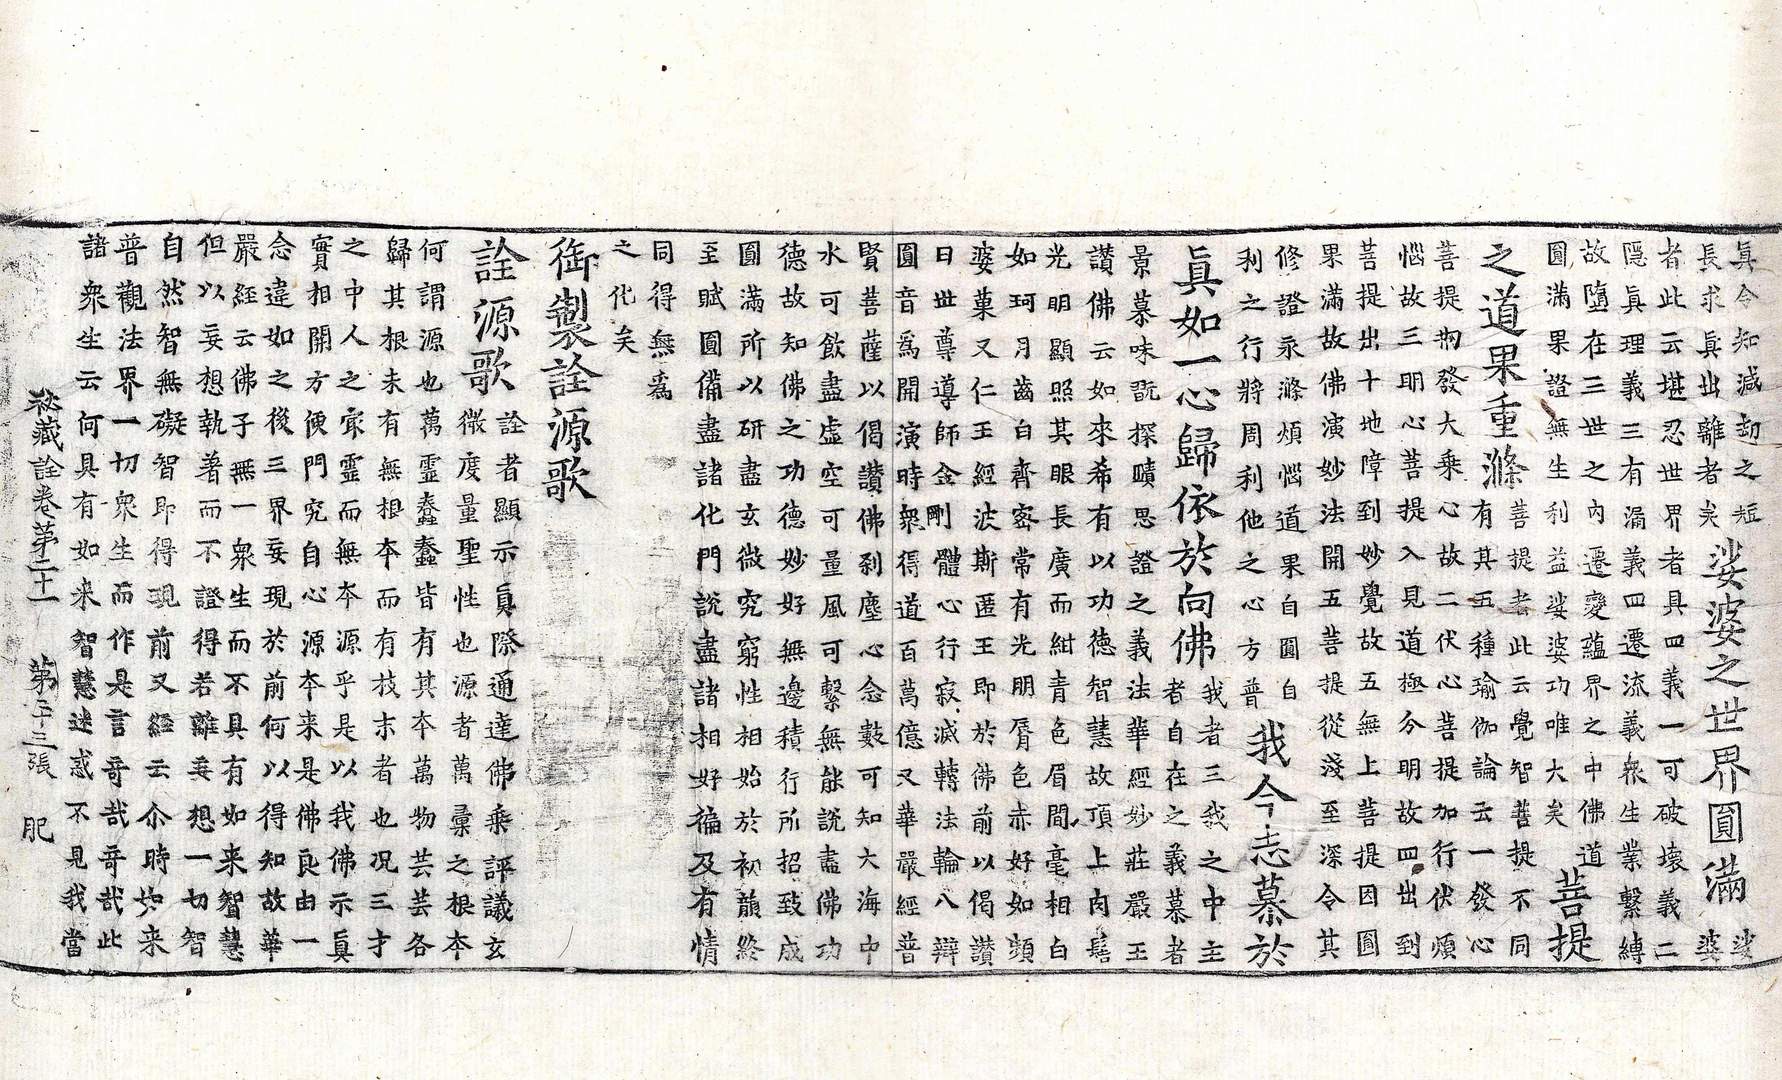 真令知減劫之短
長求真出離者矣
娑婆之世界圓滿
娑
婆
者此云堪忍世界者具四義一可破壞義二
隱真理義三有漏義四遷流義眾生業繫縛
故墮在三世之內遷變蘊界之中佛道
圓滿果證無生利益娑婆功唯大矣
菩提
之道果重滌
菩提者此云覺智菩提不同
有其五種瑜伽論云一發心
菩提初發大乘心故二伏心菩提加行伏煩
惱故三明心菩提入見道極分明故四出到
菩提出十地障到妙覺故五無上菩提因圓
果滿故佛演妙法開五菩提從淺至深令其
修證永滌煩惱道果自圓自
利之行將周利他之心方普
我今志慕於
真如一心歸依於向佛
我者三我之中主
者自在之義慕者
景慕味既探賾思證之義法華經妙莊嚴王
讚佛云如來希有以功德智慧故頂上肉髻
光明顯照其眼長廣而紺青色眉間毫相白
如珂月齒白齊密常有光明脣色赤好如頻
婆菓又仁王經波斯匿王即於佛前以偈讚
曰世尊導師金剛體心行寂滅轉法輪八辯
圓音為開演時眾得道百萬億又華嚴經普
賢菩薩以偈讚佛剎塵心念數可知大海中
水可飲盡虛空可量風可繫無能說盡佛功
德故知佛之功德妙好無邊積行所招致成
圓滿所以研盡玄微究窮性相始於初韻終
至賦圓備盡諸化門說盡諸相好徧及有情
同得無為
之化矣
御製詮源歌
詮源歌
詮者顯示真際通達佛乘評議玄
微度量聖性也源者萬彙之根本
何謂源也萬靈蠢蠢皆有其本萬物芸芸各
歸其根未有無根本而有枝末者也况三才
之中人之㝡靈而無本源乎是以我佛示真
實相開方便門究自心源本来是佛良由一
念違如之後三界妄現於前何以得知故華
嚴經云佛子無一眾生而不具有如来智慧
但以妄想執著而不證得若離妄想一切智
自然智無礙智即得現前又經云尒時如来
普觀法界一切眾生而作是言奇哉奇哉此
諸眾生云何具有如来智慧迷惑不見我當
秘藏詮卷第二十一 第二十三張 肥